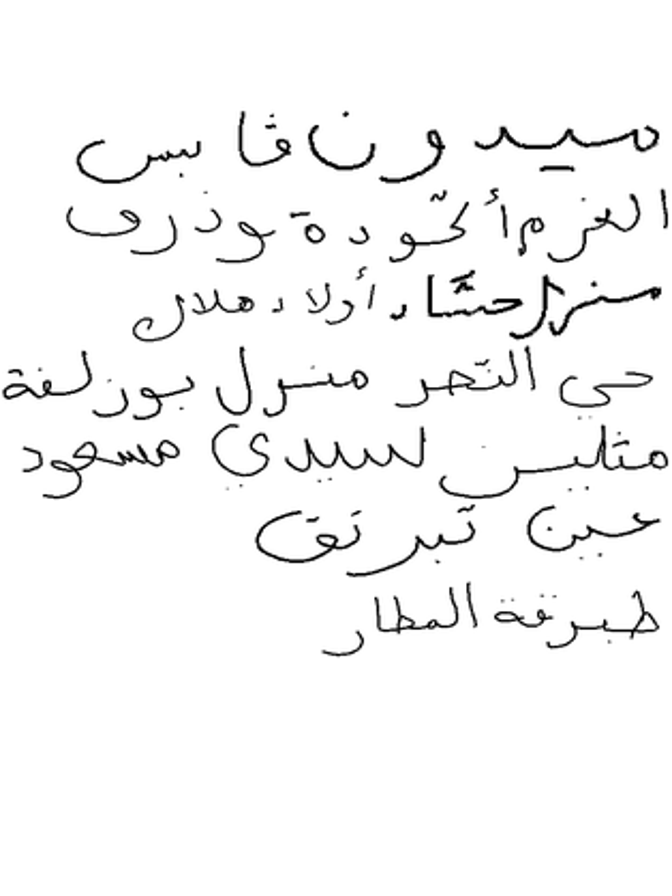 ميدون قابس
العزم أكودة وذرف
منزل حشاد أولاد هلال
حي التحرير منزل بوزلفة
مثلين لسيدي مسعود
عين تبرنق
طبرقة المطار